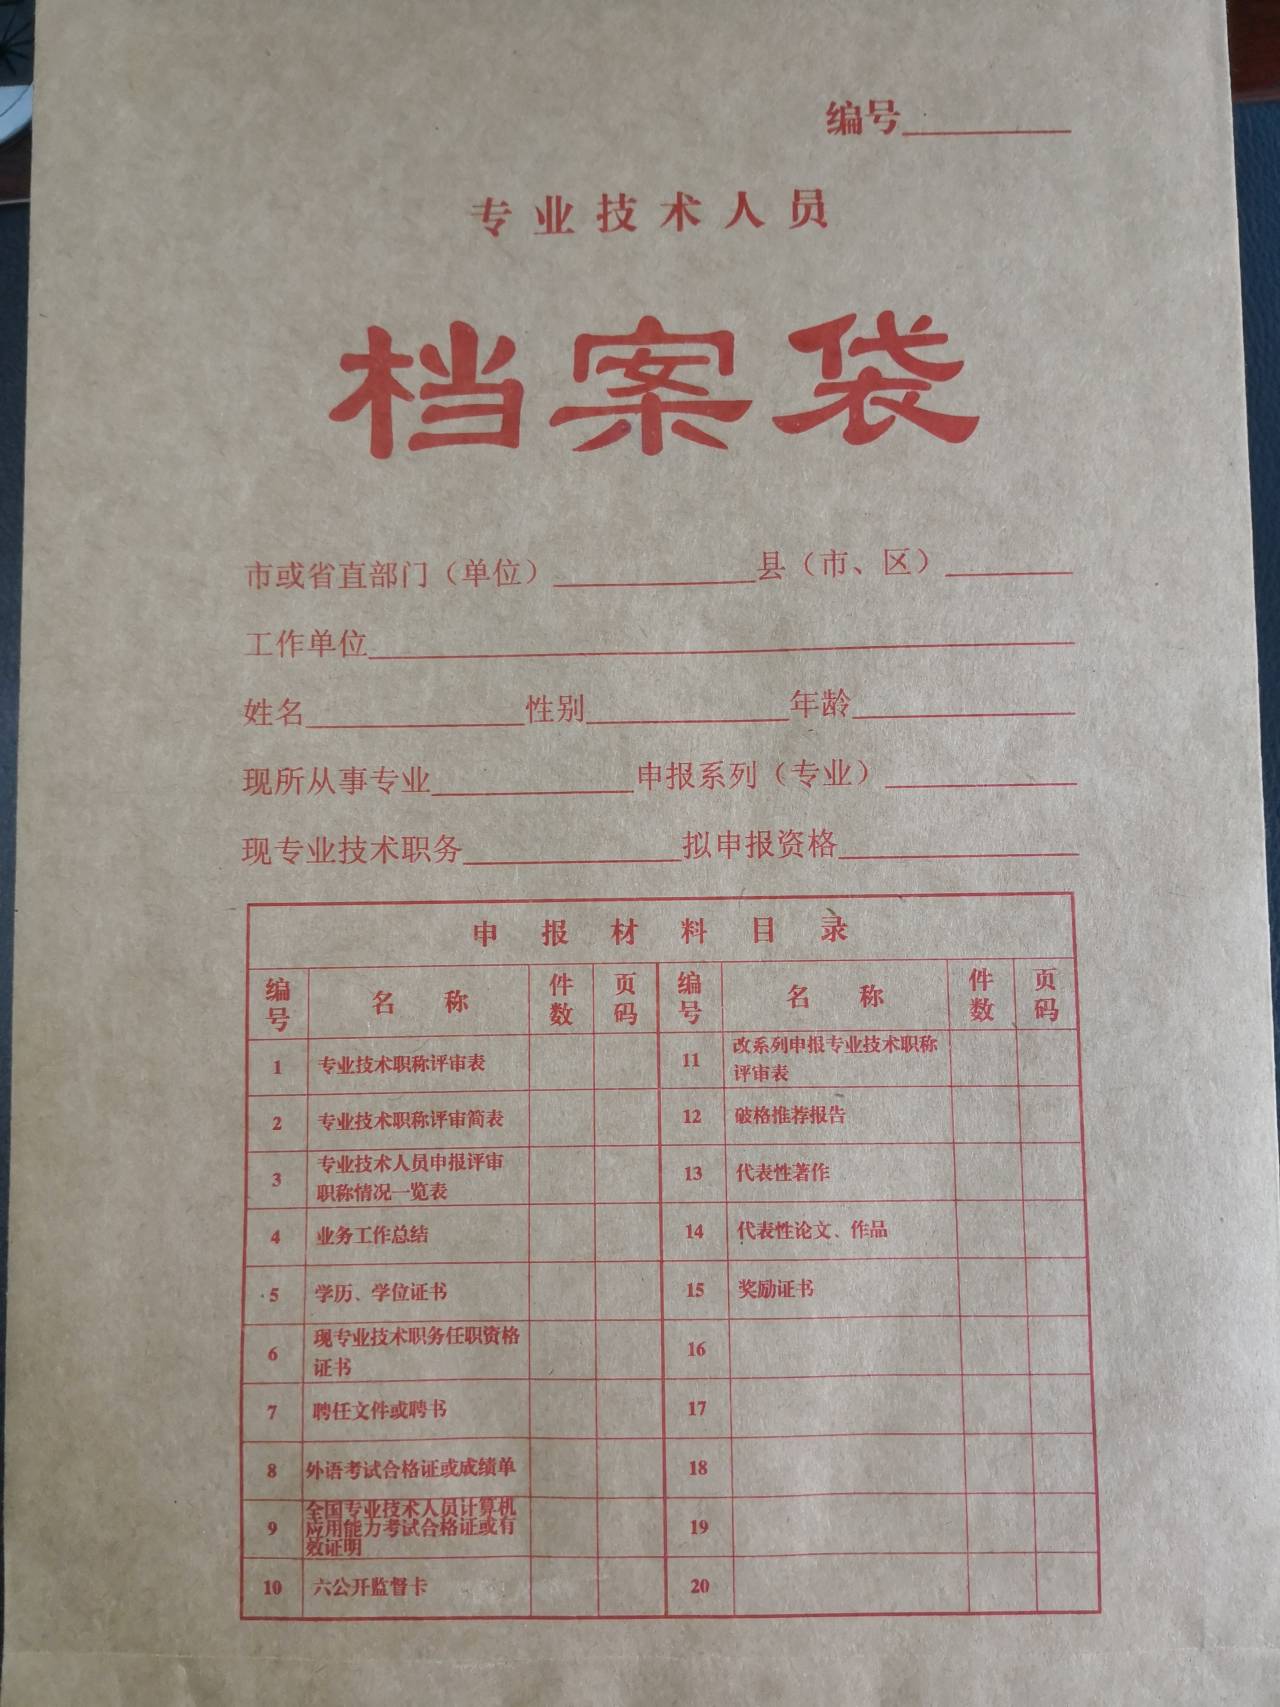 编号
专业技术人员
档案袋
市或省直部门（单位） 县（市、区）
工作单位
姓名 性别 年龄
现所从事专业 申报系列（专业）
现专业技术职务 拟申报资格
申报材料目录
编号 名称 件数 页码 编号 名称 件数 页码
1 专业技术职称评审表 11 改系列申报专业技术职称评审表
2 专业技术职称评审简表 12 破格推荐报告
3 专业技术人员申报评审职称情况一览表 13 代表性著作
4 业务工作总结 14 代表性论文、作品
5 学历、学位证书 15 奖励证书
6 现专业技术职务任职资格证书 16
7 聘任文件或聘书 17
8 外语考试合格证或成绩单 18
9 全国专业技术人员计算机应用能力考试合格证或有效证明 19
10 六公开监督卡 20